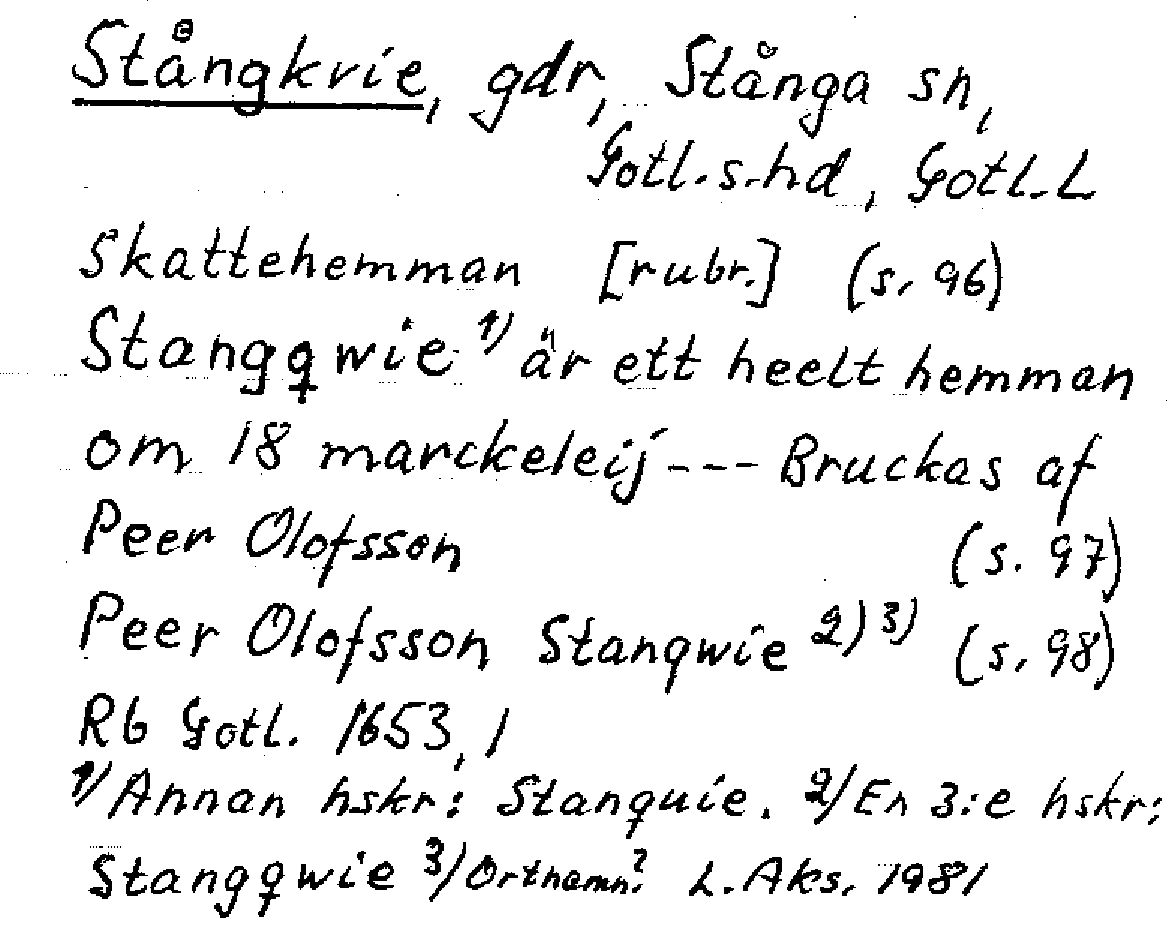 Stångkvie, gdr, Stånga sn,
Gotl.s.hd, Gotl.L
Skattehemman [rubr.] (s. 96)
Stangqwie 1) är ett heelt hemman
om 18 marckeleij --- Bruckas af
Peer Olofsson (s. 97)
Peer Olofsson Stanqwie 2) 3) (s. 98)
Rb Gotl. 1653, 1
1) Annan hskr: Stanquie. 2) En 3:e hskr:
Stangqwie 3) Ortnamn? L. Aks. 1981